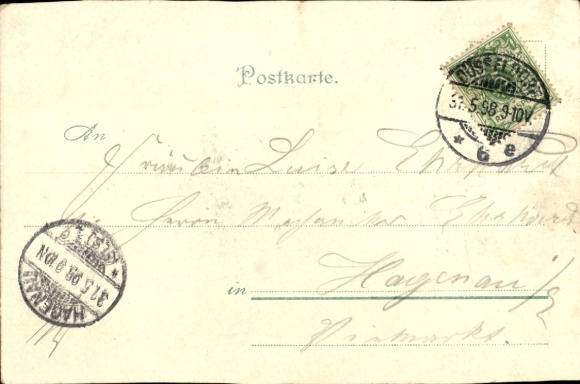 Postkarte.
DÜSSELDORF
31.5.98.9-10V
* 6 e
An
Fräulein Luise Ehrhardt
Herrn Ehrhard
HAGENAU
31.5.98.9-10N
in Hagenau
Viehmarkt.